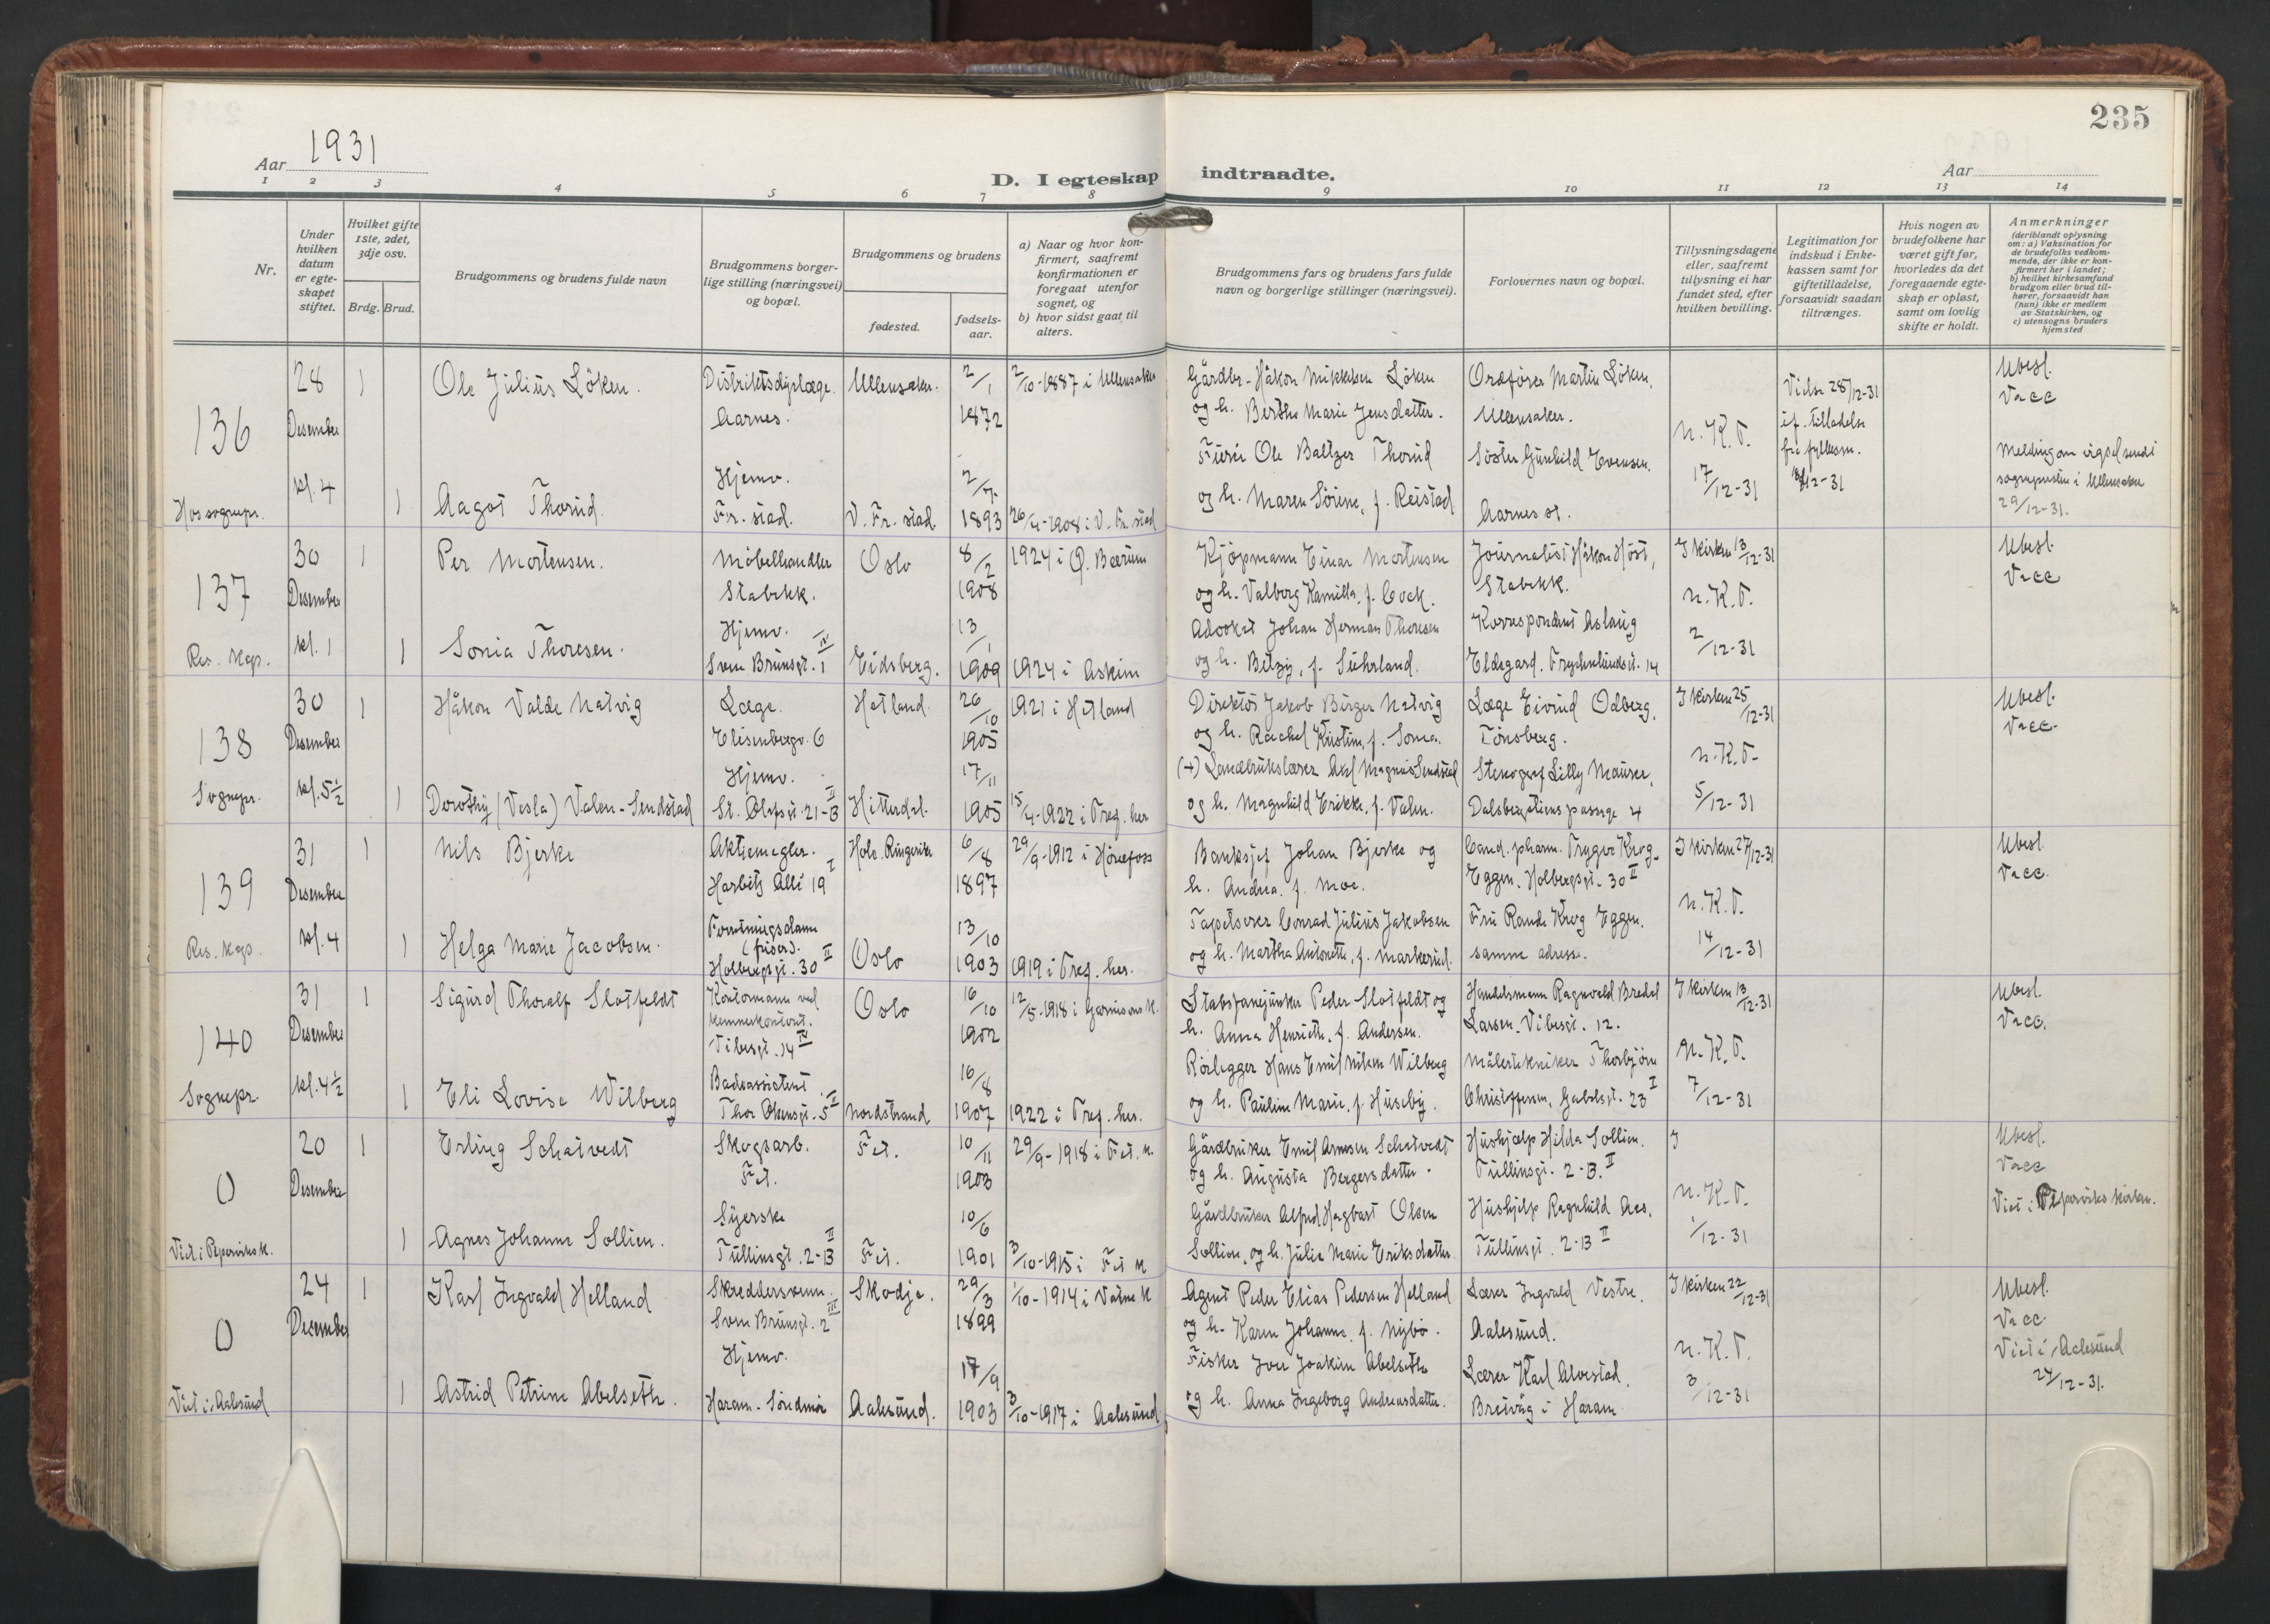 235
Aar 1931
D. I egteskap indtraadte.
Aar
1 2 3 4 5 6 7 8 9 10 11 12 13 14
Nr.
Under hvilken datum er egte-skapet stiftet.
Hvilket gifte 1ste, 2det, 3dje osv.
Brdg. Brud.
Brudgommens og brudens fulde navn
Brudgommens borger-lige stilling (næringsvei) og bopæl.
Brudgommens og brudens
fødested.
fødsels-aar.
a) Naar og hvor kon-firmert, saafremt konfirmationen er foregaat utenfor sognet, og
b) hvor sidst gaat til alters.
Brudgommens fars og brudens fars fulde navn og borgerlige stillinger (næringsvei).
Forlovernes navn og bopæl.
Tillysningsdagene eller, saafremt tillysning ei har fundet sted, efter hvilken bevilling.
Legitimation for indskud i Enke-kassen samt for giftetilladelse, forsaavidt saadan tiltrænges.
Hvis nogen av brudefolkene har været gift før, hvorledes da det foregaaende egte-skap er opløst, samt om lovlig skifte er holdt.
Anmerkninger
(deriblandt oplysning om: a) Vaksination for de brudefolks vedkom-mende, der ikke er kon-firmert her i landet;
b) hvilket kirkesamfund brudgom eller brud til-hører, forsaavidt han (hun) ikke er medlem av Statskirken, og
c) utensogns bruders hjemsted
136
28 Desember kl. 4
Hos sognepr.
1 Ole Julius Löken.
Distriktsdyrlæge. Aarnes.
Ullensaker.
2/1 1872
2/10-1887 i Ullensaker
Gårdbr. Håkon Mikkelsen Löken
og h. Berthe Marie Jensdatter.
Ordförer Martin Löken,
Ullensaker.
Vielse 28/12-31
if. tilladelse
fra fylkesm.
18/12-31
Ubesl.
Vacc
1 Aagot Thorud.
Hjemv.
Fr.stad.
V. Fr.stad
2/7 1893
26/4-1908 i V. Fr.stad
Furer Ole Baltzer Thorud
og h. Maren Sörine, f. Reistad
Söster Gunhild Evensen.
Aarnes st.
N.K.T.
17/12-31
Melding om vigsel sendt
sognepresten i Ullensaker
29/12-31.
137
30 Desember kl. 1
Res. kap.
1 Per Mortensen.
Möbelhandler
Stabekk.
Oslo
8/2 1908
1924 i Ö. Bærum
Kjöpmann Einar Mortensen
og h. Valborg Kamilla, f. Cock.
Journalist Håkon Höst,
Stabekk.
I kirken 13/12-31
Ubesl.
Vacc
1 Sonia Thoresen.
Hjemv.
Sven Brunsgt. 1 IV
Eidsberg.
13/1 1909
1924 i Askim
Advokat Johan Herman Thoresen
og h. Betzy, f. Suhrland.
Korrespondent Aslaug
Eldegard. Frydenlundsgt. 14
N.K.T.
2/12-31
138
30 Desember kl. 5½
Sognepr.
1 Håkon Valde Natvig
Læge.
Elisenbergv. 6
Hetland.
26/10 1905
1921 i Hetland
Direktör Jakob Birger Natvig
og h. Rachel Kristine, f. Soma.
Læge Eivind Odberg.
Tönsberg.
I kirken 25/12-31
Ubesl.
Vacc.
1 Dorothy (Vesla) Valen-Sendstad
Hjemv.
St. Olafsgt. 21-B II
Hitterdal.
17/11 1905
15/4-1922 i Tref. her
(+) Landbrukslærer Axel Magnus Sendstad
og h. Magnhild Erikke, f. Valen.
Stenograf Lilly Maurer,
Dalsbergstiens passage 4
N.K.T.
5/12-31
139
31 Desember kl. 4
Res. kap.
1 Nils Bjerke
Aktiemegler.
Harbitz Allé 19 I
Hole. Ringerike
6/8 1897
29/9-1912 i Hönefoss
Banksjef Johan Bjerke og
h. Andrea. f. Moe.
Cand. pharm. Trygve Krog-
Eggen. Holbergsgt. 30 II
I kirken 27/12-31
Ubesl.
Vacc.
1 Helga Marie Jacobsen.
Forretningsdame
(frisör).
Holbergsgt. 30 II
Oslo
13/10 1903
1919 i Tref. her.
Tapetserer Conrad Julius Jakobsen
og h. Martha Antonette, f. Markerud.
Fru Randi Krog Eggen.
samme adresse.
N.K.T.
14/12-31
140
31 Desember kl. 4½
Sognepr.
1 Sigurd Thoralf Slotfeldt
Kontormann ved
kemnerkontoret.
Vibesgt. 14 IV
Oslo
16/10 1902
12/5-1918 i Garnisons K.
Stabsfanejunker Peder Slotfeldt og
h. Anna Henriette, f. Andersen.
Handelsmann Ragnvald Bredel
Larsen. Vibesgt. 12.
I kirken 13/12-31
Ubesl.
Vacc.
1 Eli Lovise Wilberg
Badeassistent
Thor Olsensgt. 5 II
Nordstrand
16/8 1907
1922 i Tref. her.
Rörlegger Hans Emil Nilsen Wilberg
og h. Pauline Marie, f. Huseby.
Målertekniker Thorbjörn
Christoffersen, Gabelsgt. 23 I
N.K.T.
7/12-31
0
20 Desember
Viet i Pipervikens k.
1 Erling Schatvedt
Skogsarb.
Fet.
Fet.
10/11 1903
29/9-1918 i Fet. K.
Gårdbruker Emil Arnesen Schatvedt
og h. Augusta Bergersdatter.
Hushjelp Hilda Sollien.
Tullinsgt. 2-B. II
I
Ubesl.
Vacc
Viet i Pipervikens kirken.
1 Agnes Johanne Sollien.
Syerske
Tullinsgt. 2-B II
Fet.
10/6 1901
3/10-1915 i Fet K
Gårdbruker Alfred Hagbart Olsen
Sollien, og h. Julie Marie Eriksdatter.
Hushjelp Ragnhild Aas,
Tullinsgt. 2-B II
N.K.T.
1/12-31
0
24 Desember
Viet i Aalesund
1 Karl Ingvald Helland
Skreddersvenn.
Sven Brunsgt. 2 III
Skodje.
29/3 1899
1/10-1914 i Vatne K
Agent Peder Elias Pedersen Helland
og h. Karen Johanne, f. Nybö.
Lærer Ingvald Vestre,
Aalesund.
I kirken 22/12-31
Ubesl.
Vacc.
Viet i Aalesund
24/12-31.
1 Astrid Petrine Abelseth.
Hjemv.
Haram. Söndmör
Aalesund.
17/9 1903
3/10-1917 i Aalesund
Fisker Iver Joakim Abelseth
og h. Anna Ingeborg Andreasdatter.
Lærer Karl Alvestad,
Breivåg i Haram
N.K.T.
3/12-31